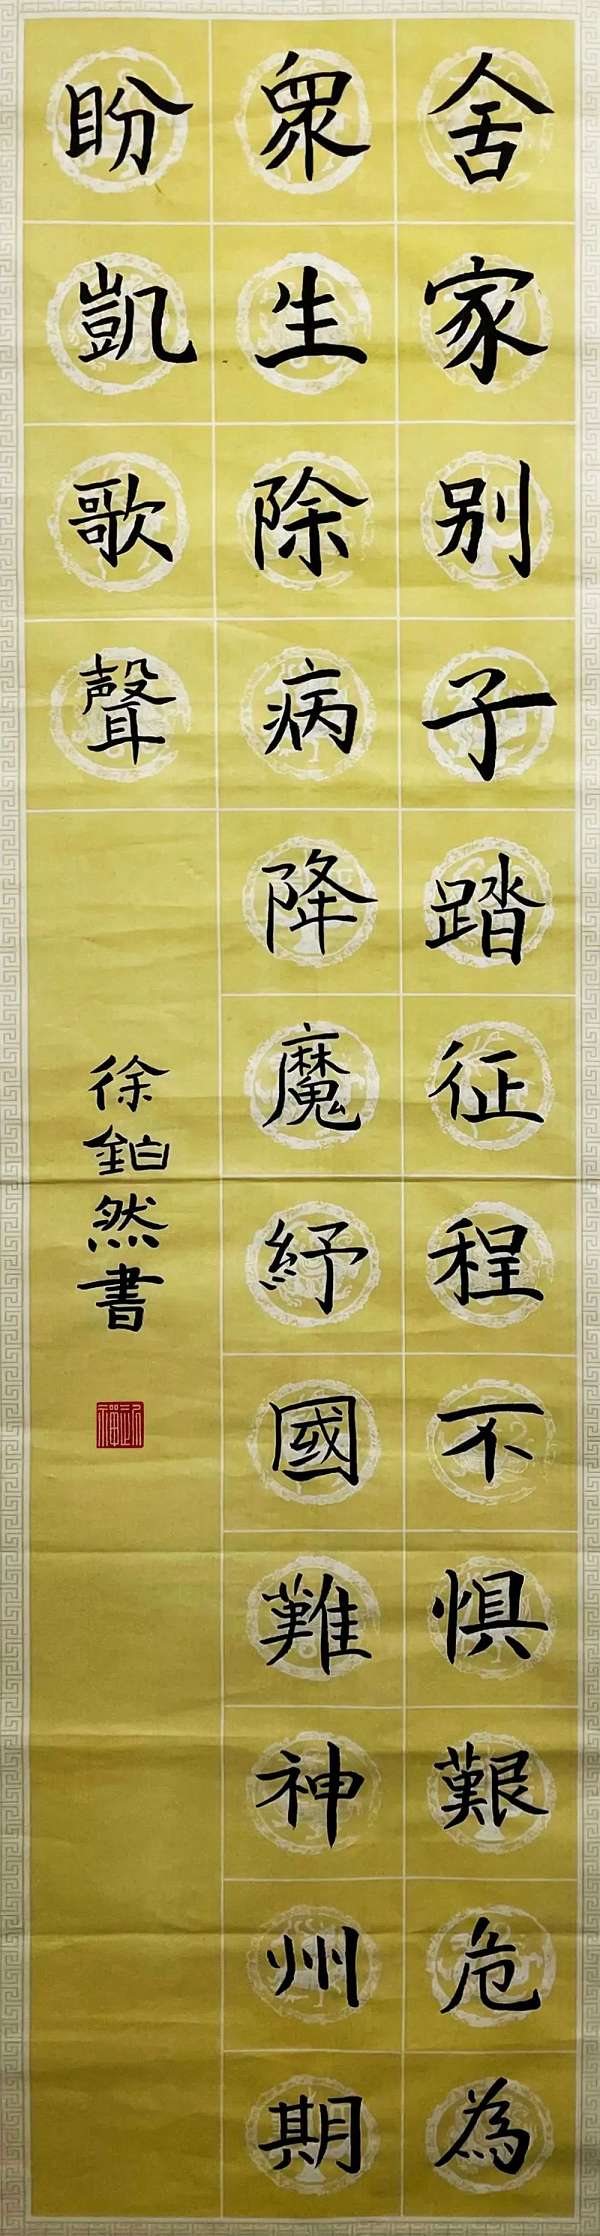 舍家别子踏征程不惧艱危為
眾生除病降魔紓國難神州期
盼凱歌聲
徐鉑然書